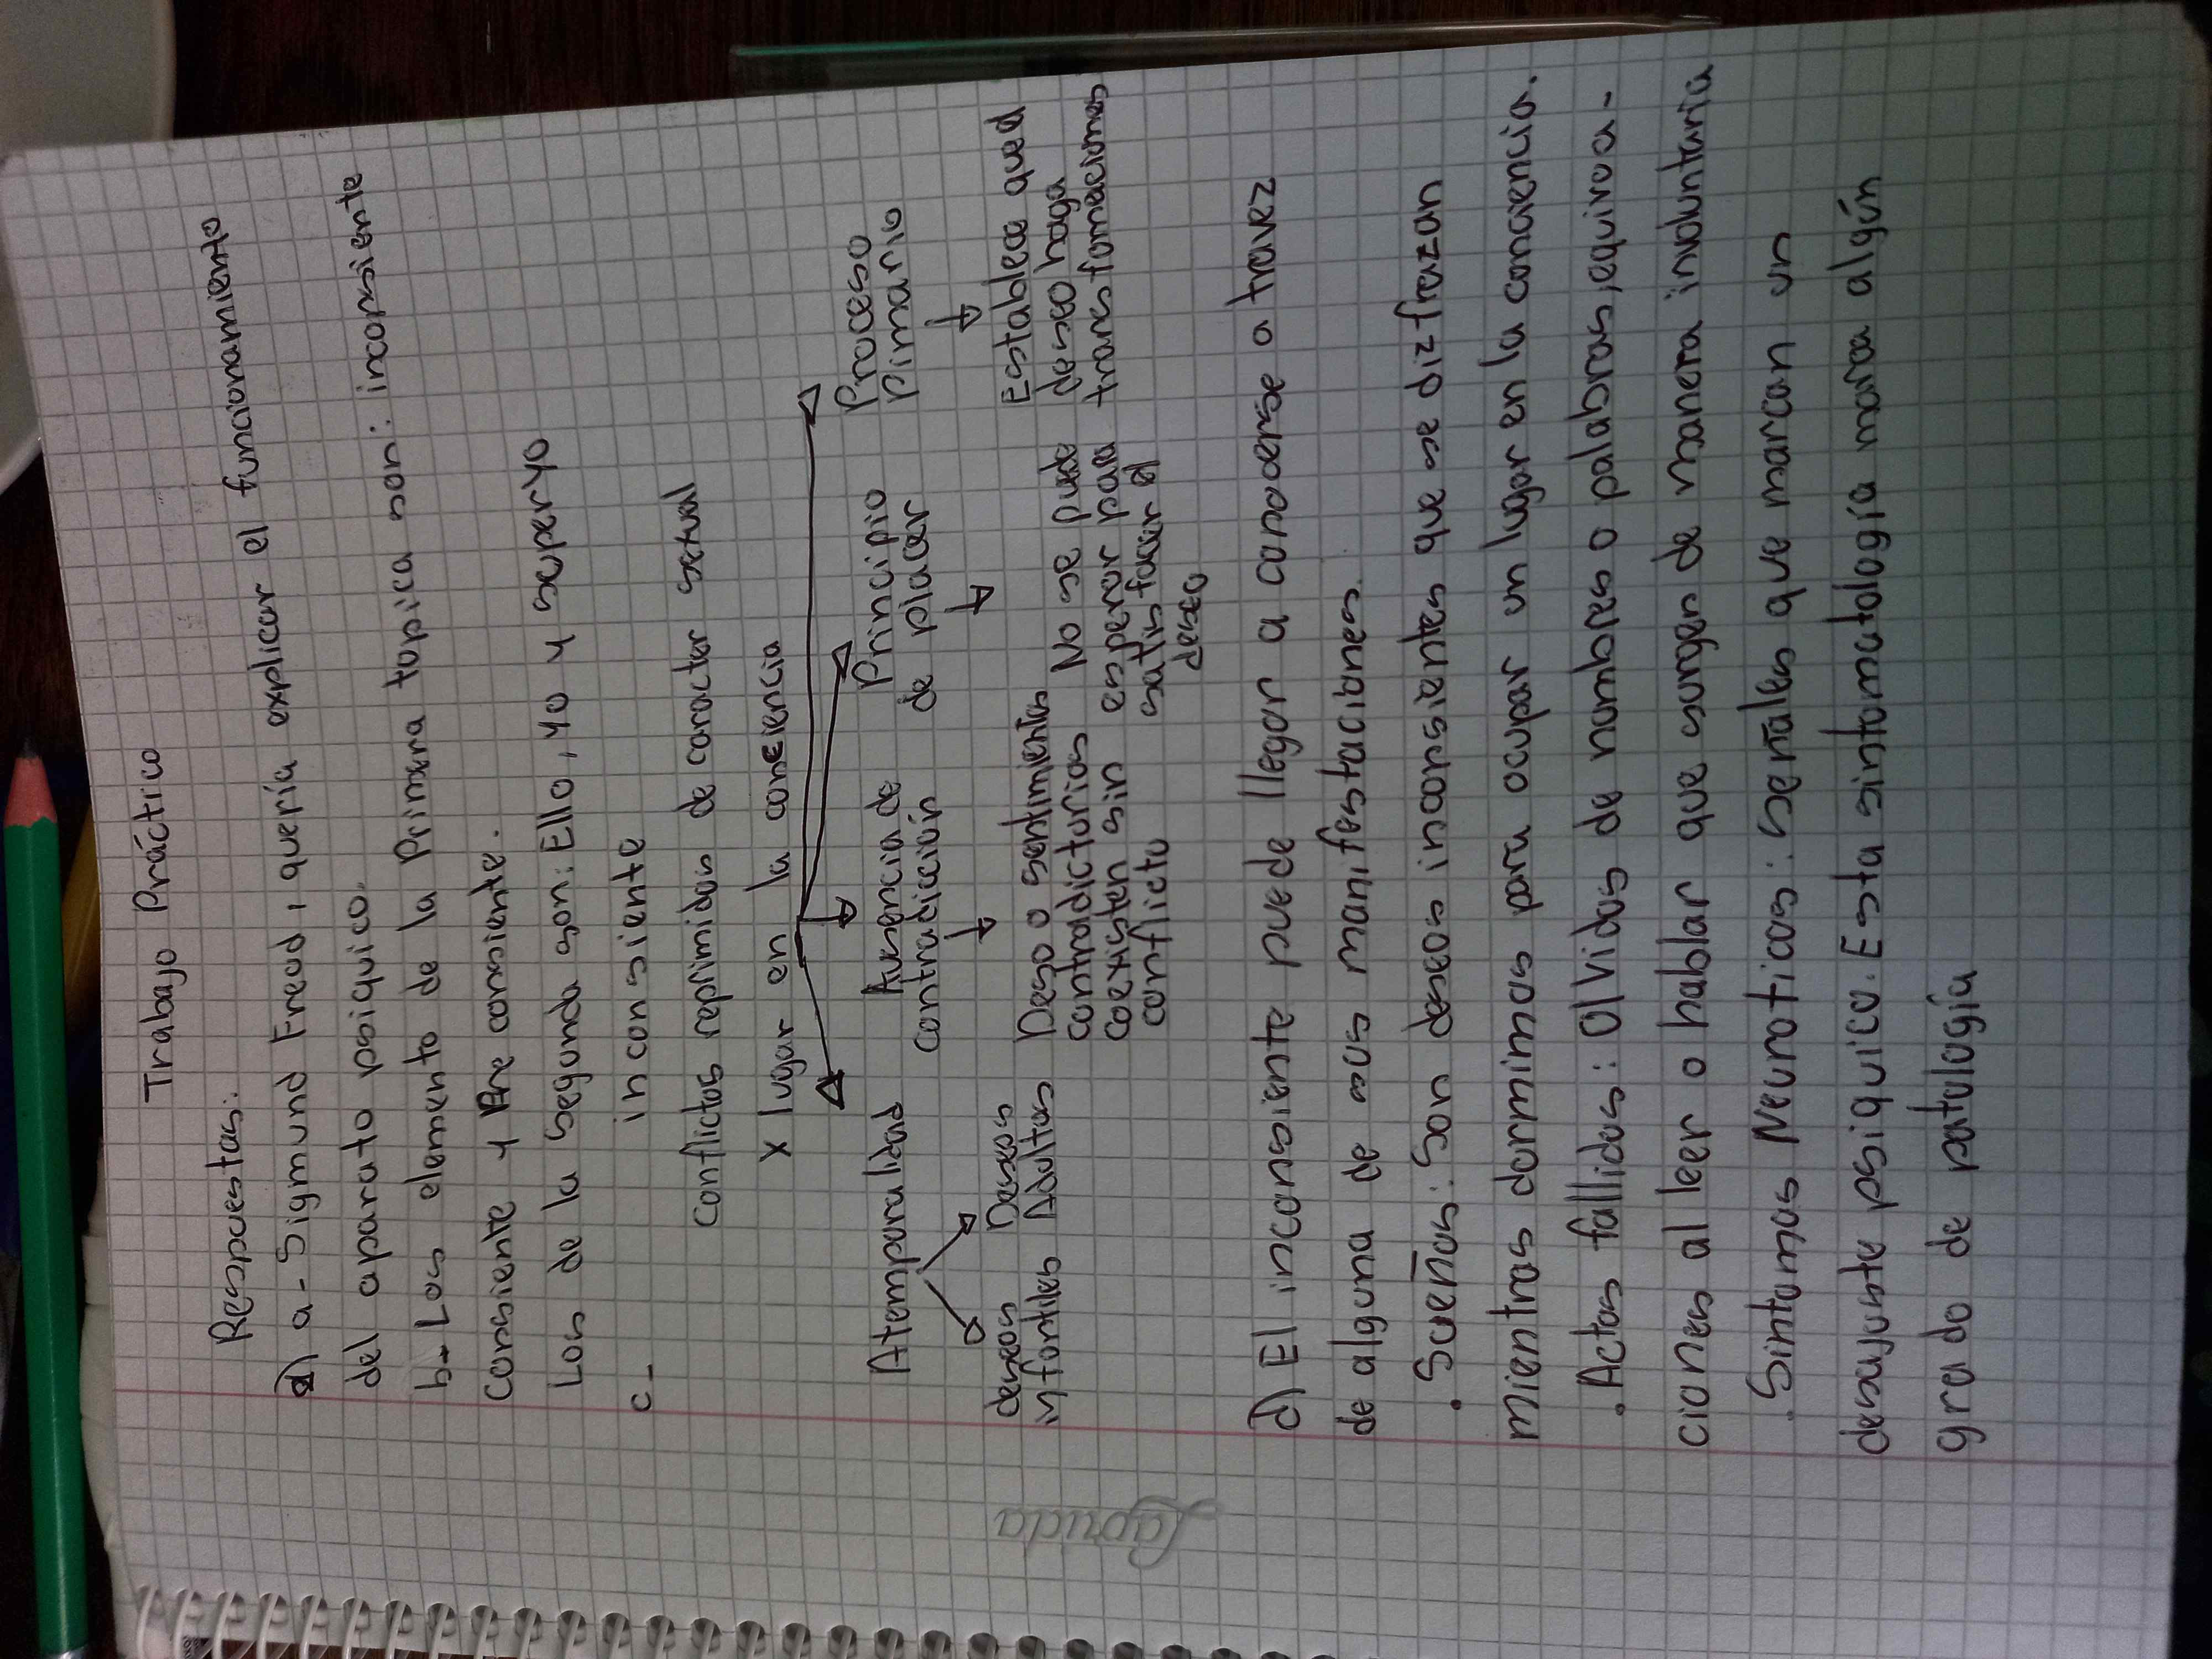 Trabajo Práctico
Respuestas:
a) a- Sigmund Freud, quería explicar el funcionamiento
del aparato psiquico.
b- Los elemento de la Primera topica son: inconsiente
consiente y Pre consiente.
Los de la segunda son: Ello, yo y superyo
c- inconsiente
conflictos reprimidos de caracter sexual
x lugar en la conciencia
Atemporalidad
deseos infantiles
Deseos Adultos
Ausencia de
contradicción
Deso o sentimientos
contradicturios
coexisten sin
conflicto
Principio
de placer
No se puede
esperar para
satisfacer el
deseo
Proceso
Pimario
Establece que el
deseo haga
transfomaciones
d) El inconsiente puede llegar a conocerse a travez
de alguna de sus manifestaciones.
. Sueños: Son deseos inconsientes que se dizfrazan
mientras dormimos para ocupar un lugar en la conciencia.
. Actos fallidos: Olvidos de nombres o palabras, equivoca-
ciones al leer o hablar que surgen de manera involuntaria
. Sintomas Neuroticos: señales que marcan un
desajuste psiquico. Esta sintomatología marca algún
grado de patología
Laprida